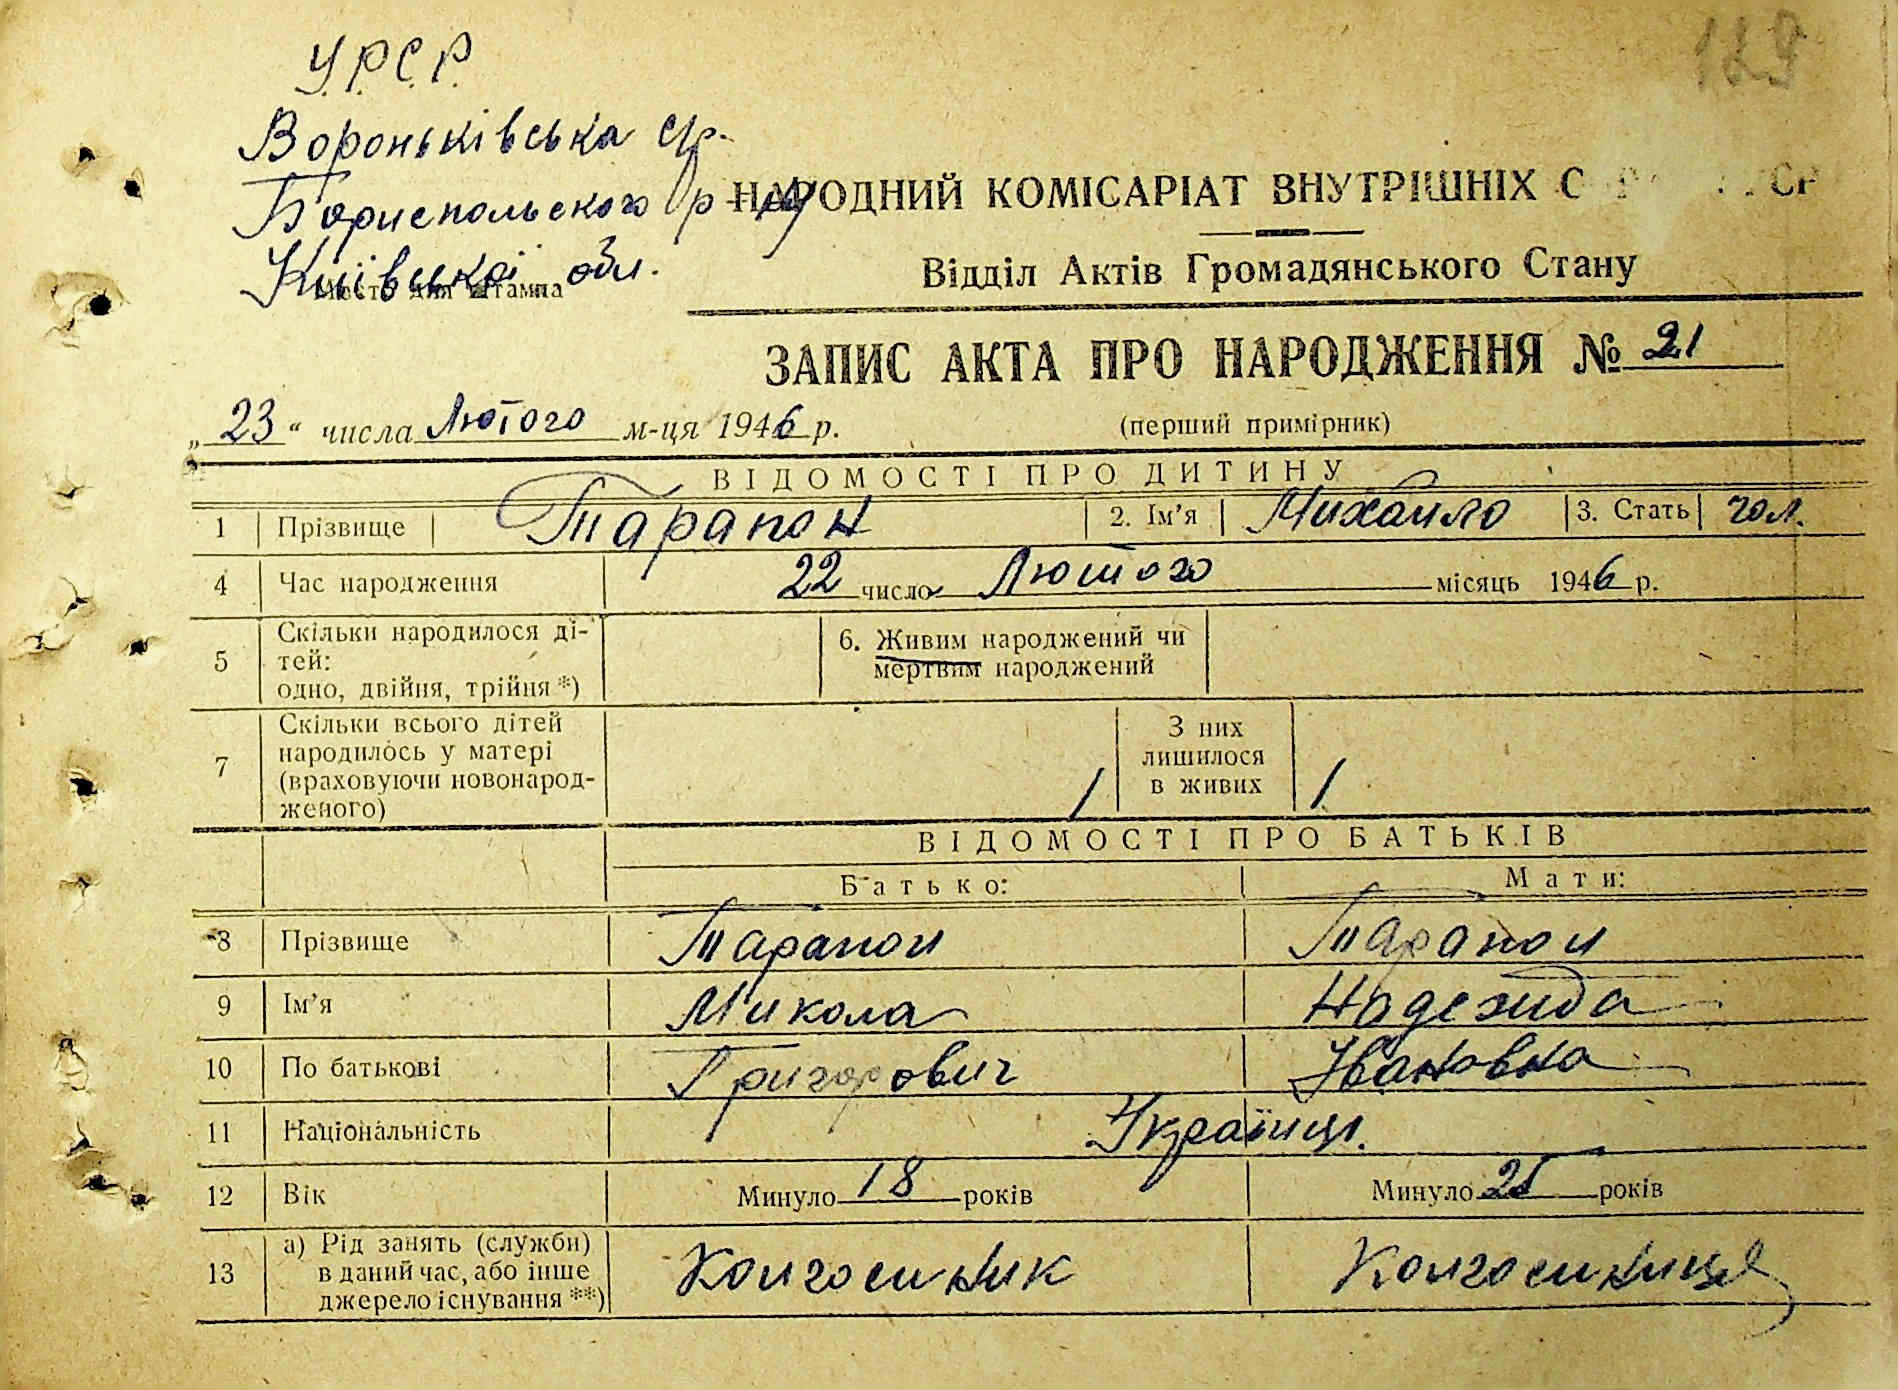 129
У.Р.С.Р.
Вороньківська с/р.
Бориспольского р-ну
Київської обл.
Місце для штампа
НАРОДНИЙ КОМІСАРІАТ ВНУТРІШНІХ
Відділ Актів Громадянського Стану
ЗАПИС АКТА ПРО НАРОДЖЕННЯ № 21
„23“ числа Лютого м-ця 1946 р. (перший примірник)
ВІДОМОСТІ ПРО ДИТИНУ
1 Прізвище Тарапон 2. Ім'я Михайло 3. Стать чол.
4 Час народження 22 число Лютого місяць 1946 р.
5 Скільки народилося ді-
тей:
одно, двійня, трійня *)
6. Живим народжений чи
мертвим народжений
7 Скільки всього дітей
народилось у матері
(враховуючи новонарод-
женого)
1
З них
лишилося
в живих
1
ВІДОМОСТІ ПРО БАТЬКІВ
Батько: Мати:
8 Прізвище Тарапон Тарапон
9 Ім'я Микола Надежида
10 По батькові Григорович Івановна
11 Національність Українці.
12 Вік Минуло 18 років Минуло 25 років
13 а) Рід занять (служби)
в даний час, або інше
джерело існування **)
Колгоспник Колгоспниця